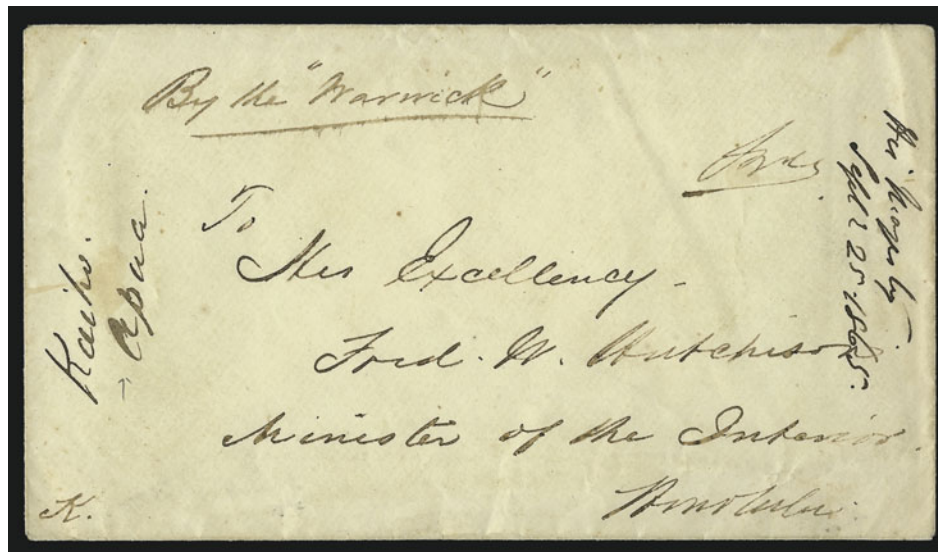 By the "Warwick"
To
His Excellency.
Fred. W. Hutchison
Minister of the Interior.
Honolulu.
K.
His Majesty
Sept. 25. 1865.